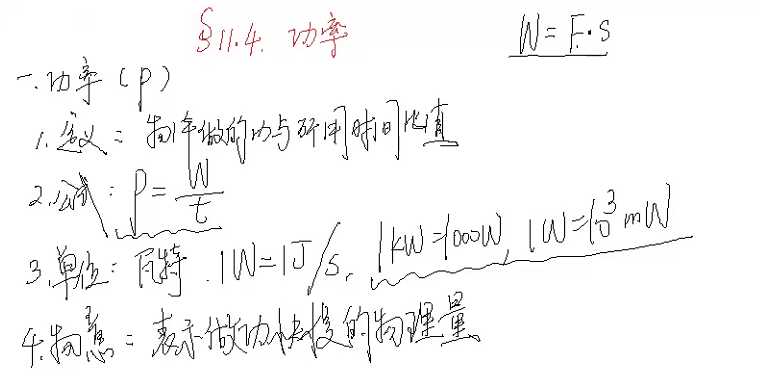 §11.4. 功率
W=F·S
一.功率(P)
1.定义：物体做的功与所用时间比值
2.公式：P=W/t
3.单位：瓦特.1W=1J/s, 1kW=1000W, 1W=10³mW
4.物意：表示做功快慢的物理量